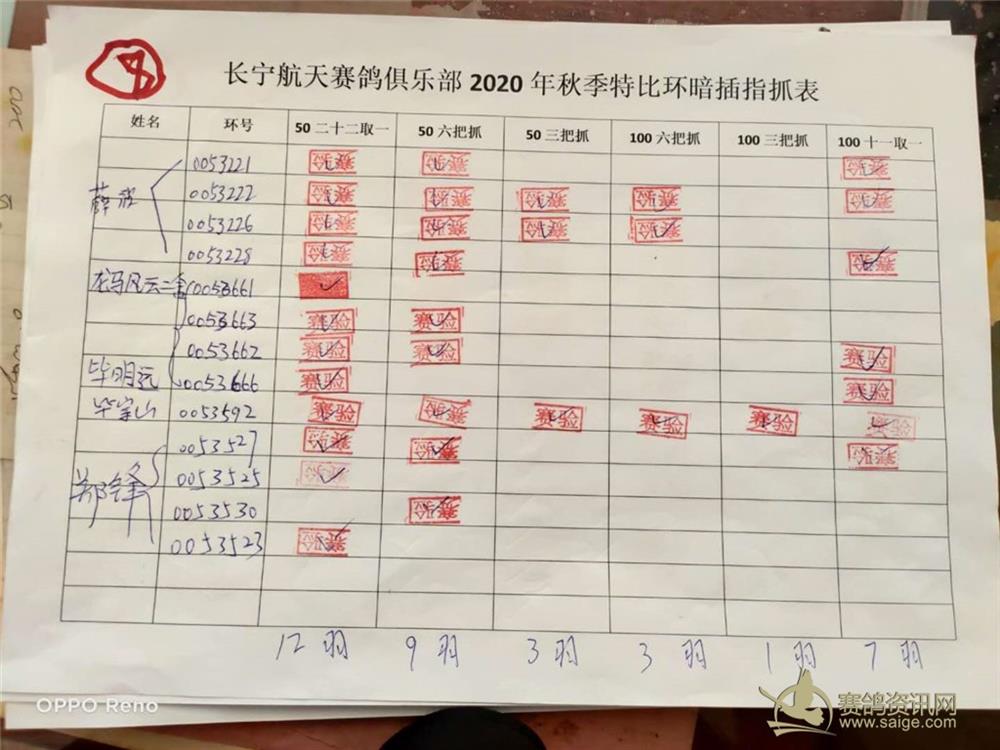 8
长宁航天赛鸽俱乐部 2020 年秋季特比环暗插指抓表
姓名 环号 50 二十二取一 50 六把抓 50 三把抓 100 六把抓 100 三把抓 100 十一取一
0053221 赛验 赛验 赛验
薛 0053222 赛验 赛验 赛验 赛验 赛验
0053226 赛验 赛验 赛验 赛验
0053228 赛验 赛验 赛验
龙马风云二 0053661
0053663 赛验 赛验
0053662 赛验 赛验 赛验
毕明远 0053666 赛验 赛验
毕宝山 0053592 赛验 赛验 赛验 赛验 赛验 赛验
0053527 赛验 赛验 赛验
郑锋 0053525 赛验
0053530 赛验
0053523 赛验
12 羽 9 羽 3 羽 3 羽 1 羽 7 羽
OPPO Reno
赛鸽资讯网
www.saige.com